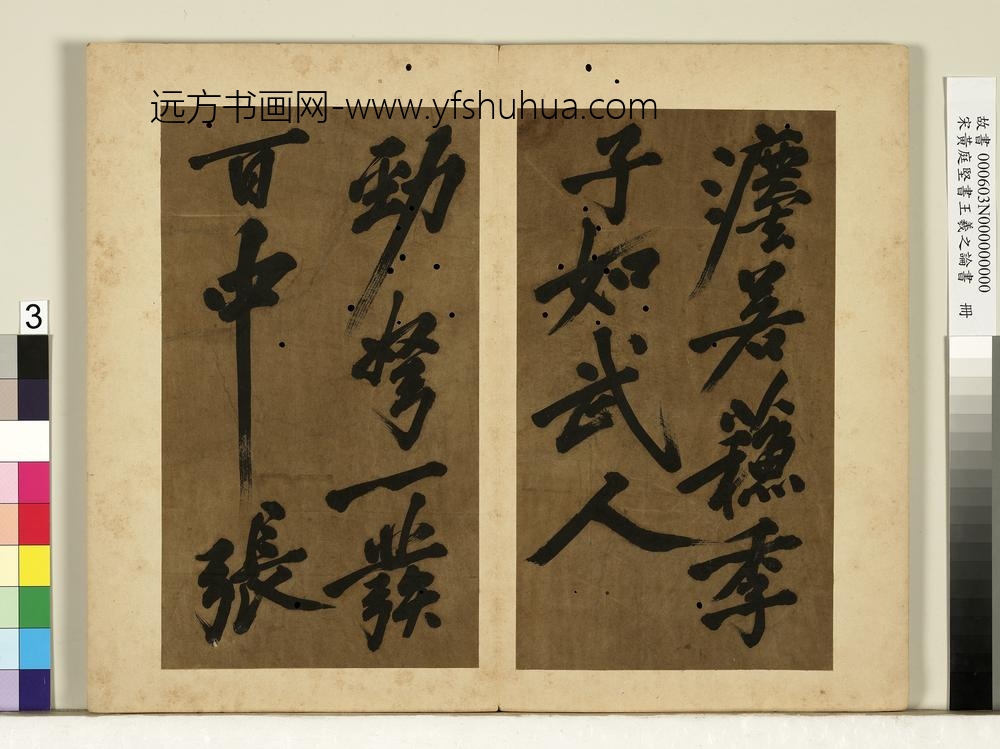 远方书画网-www.yfshuhua.com
故書 000603N000000000
宋黃庭堅書王羲之論書 冊
瀍若蘓季
子如武人
勁弩一發
百中 張
3